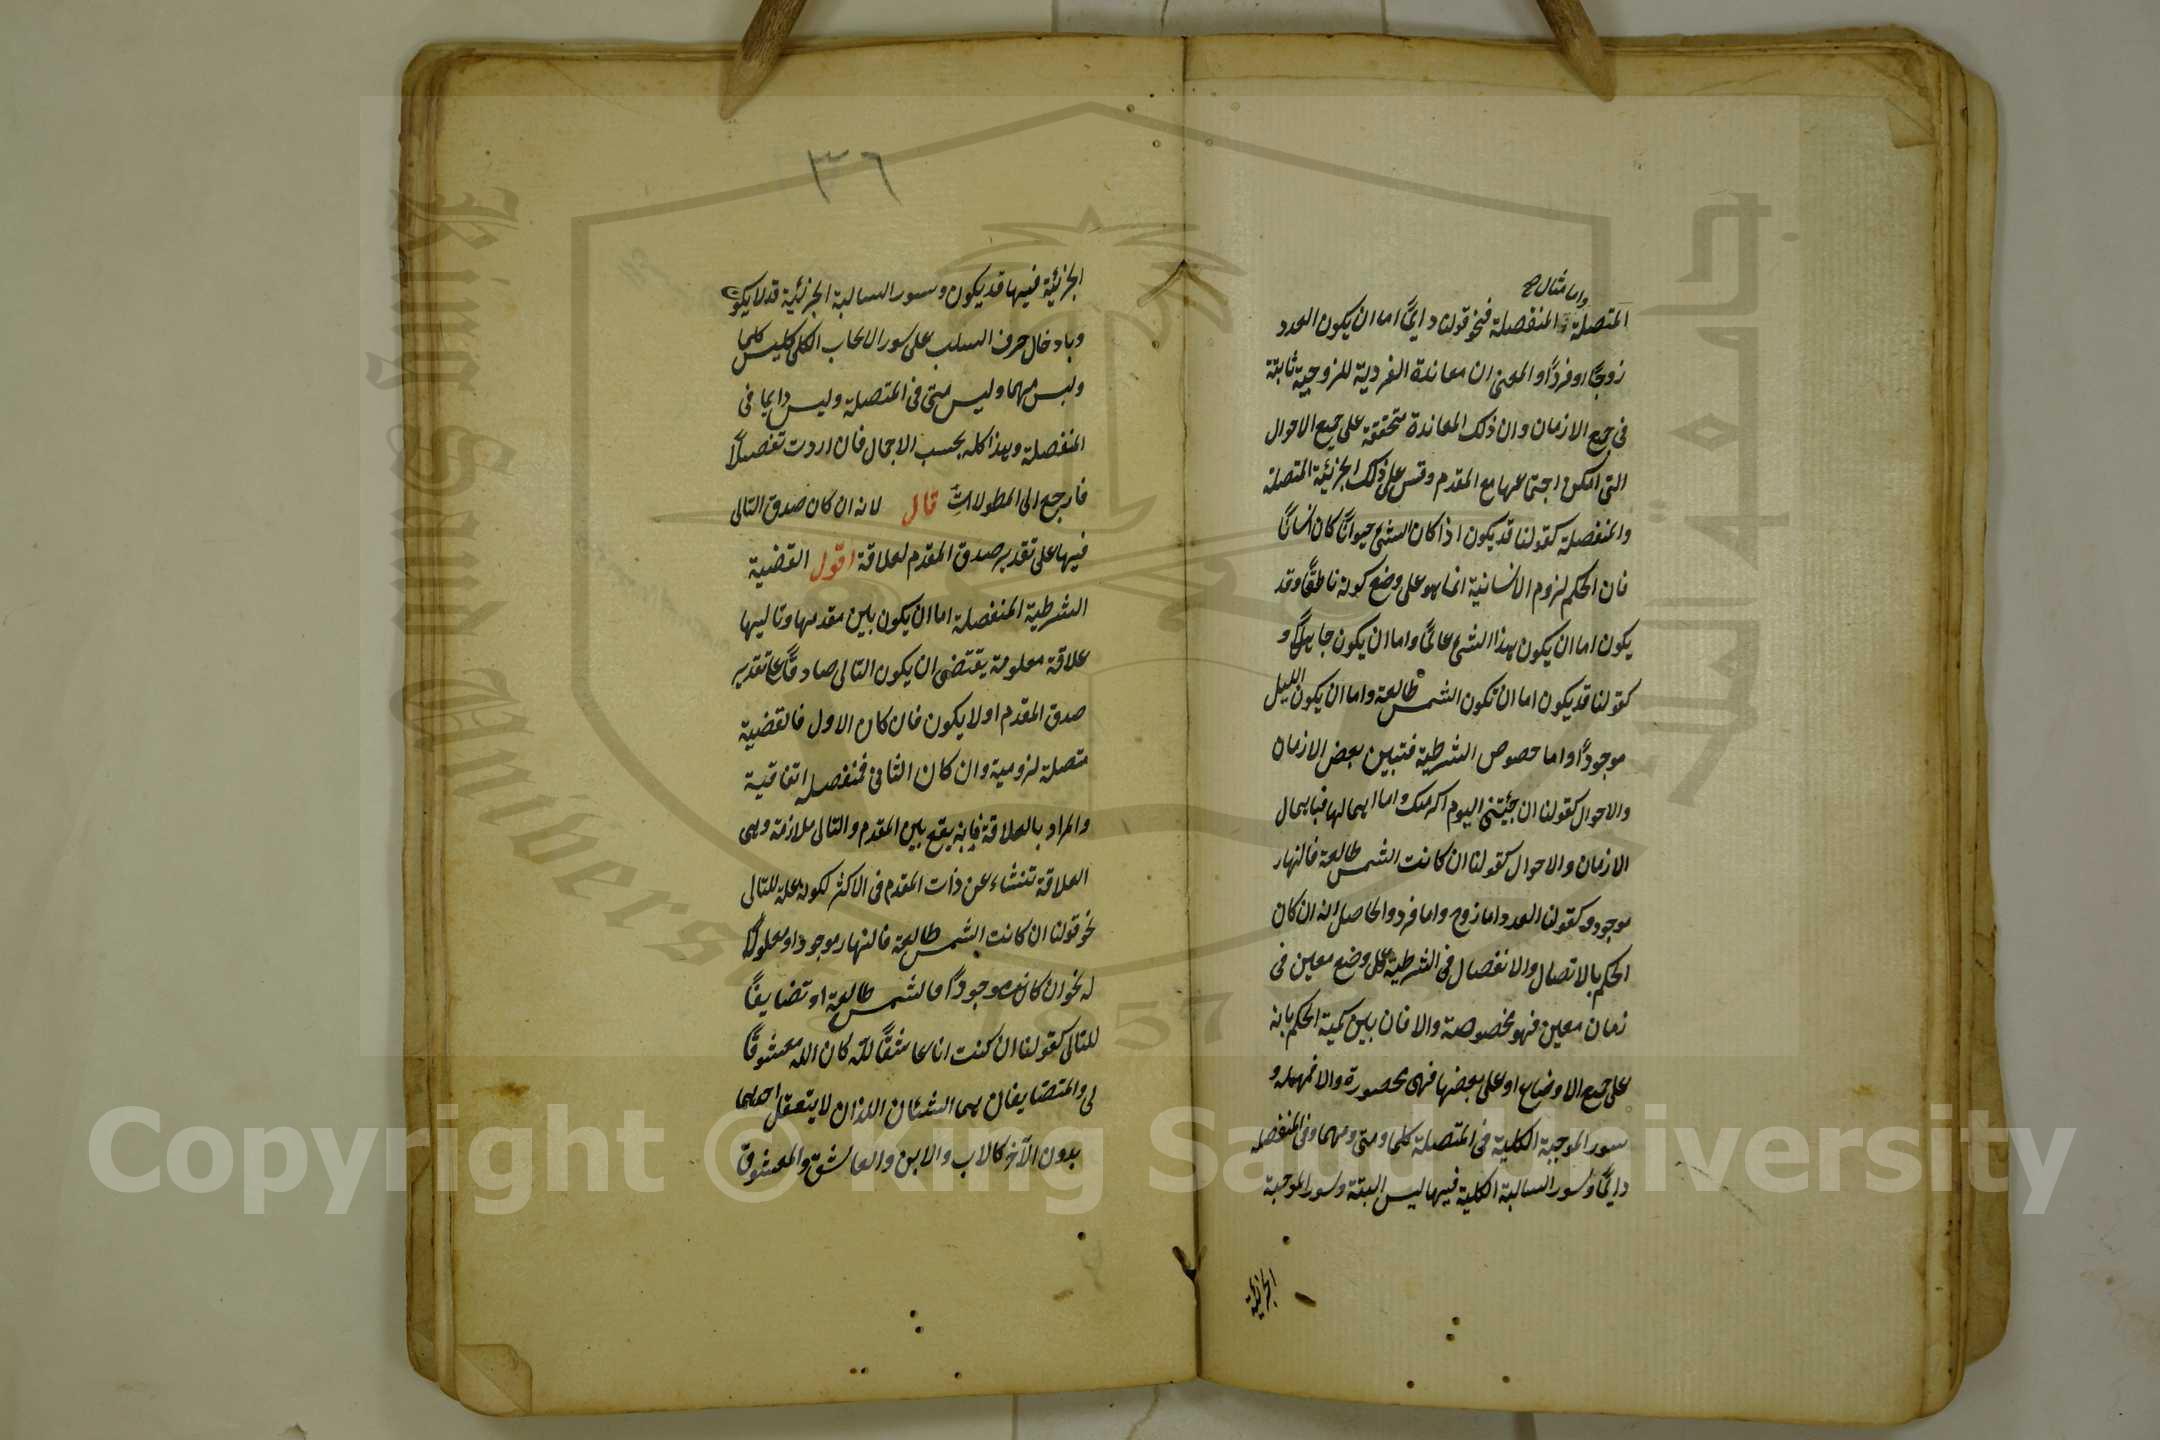 واما مثال
المتصلة والمنفصلة فنحو قولنا دايمًا اما ان يكون العدد
زوجًا او فردًا والمعنى ان معاندة الفردية للزوجية ثابتة
فى جميع الازمان وان ذلك المعاندة متحققة على جميع الاحوال
التى امكن اجتماعها مع المقدم وقس على ذلك الجزئية المتصلة
والمنفصلة كقولنا قد يكون اذا كان الشئ حيوانًا كان انسانًا
فان الحكم لزوم الانسانية انما هو على وضع كونه ناطقًا وقد
يكون اما ان يكون هذا الشئ عالمًا واما ان يكون جاهلًا و
كقولنا قد يكون اما ان تكون الشمس طالعة واما ان يكون الليل
موجودًا واما خصوص الشرطية فتبين بعض الازمان
والاحوال كقولنا ان جئتنى اليوم اكرمتك واما اهمالها فباهمال
الازمان والاحوال كقولنا ان كانت الشمس طالعة فالنهار
موجود وكقولنا العدد اما زوج واما فرد والحاصل انه ان كان
الحكم بالاتصال والانفصال فى الشرطية على وضع معين فى
زمان معين فهو مخصوصة والا فان بين كمية الحكم بانه
على جميع الاوضاع او على بعضها فهى محصورة والا فمهملة و
سور الموجبة الكلية فى المتصلة كلما ومتى ومهما وفى المنفصلة
دايمًا وسور السالبة الكلية فيها ليس البتة وسور الموجبة
الجزئية
٣٦
الجزئية فيها قد يكون وسور السالبة الجزئية قد لا يكون
وبادخال حرف السلب على سور الايجاب الكلى كليس كلما
وليس مهما وليس متى فى المتصلة وليس دايما فى
المنفصلة وهذا كله بحسب الاجمال فان اردت تفصيلًا
فارجع الى المطولات قال لانه ان كان صدق التالى
فيها على تقدير صدق المقدم لعلاقة اقول القضية
الشرطية المنفصلة اما ان يكون بين مقدمها وتاليها
علاقة معلومة يقتضى ان يكون التالى صادقًا على تقدير
صدق المقدم او لا يكون فان كان الاول فالقضية
متصلة لزومية وان كان الثانى فمنفصلة اتفاقية
والمراد بالعلاقة فانه يقع بين المقدم والتالى ملازمة وهى
العلاقة تنشاء عن ذات المقدم فى الاكثر لكونه علة للتالى
نحو قولنا ان كانت الشمس طالعة فالنهار موجود او معلولًا
له نحو ان كان نهر موجودًا فالشمس طالعة او تضايفًا
للتالى كقولنا ان كنت انا عاشقًا لله كان الله معشوقًا
لى والمتضايفان هما الشئان اللذان لا يتعقل احدهما
بدون الآخر كالاب والابن والعاشق والمعشوق
Copyright © King Saud University
King Saud University
1957